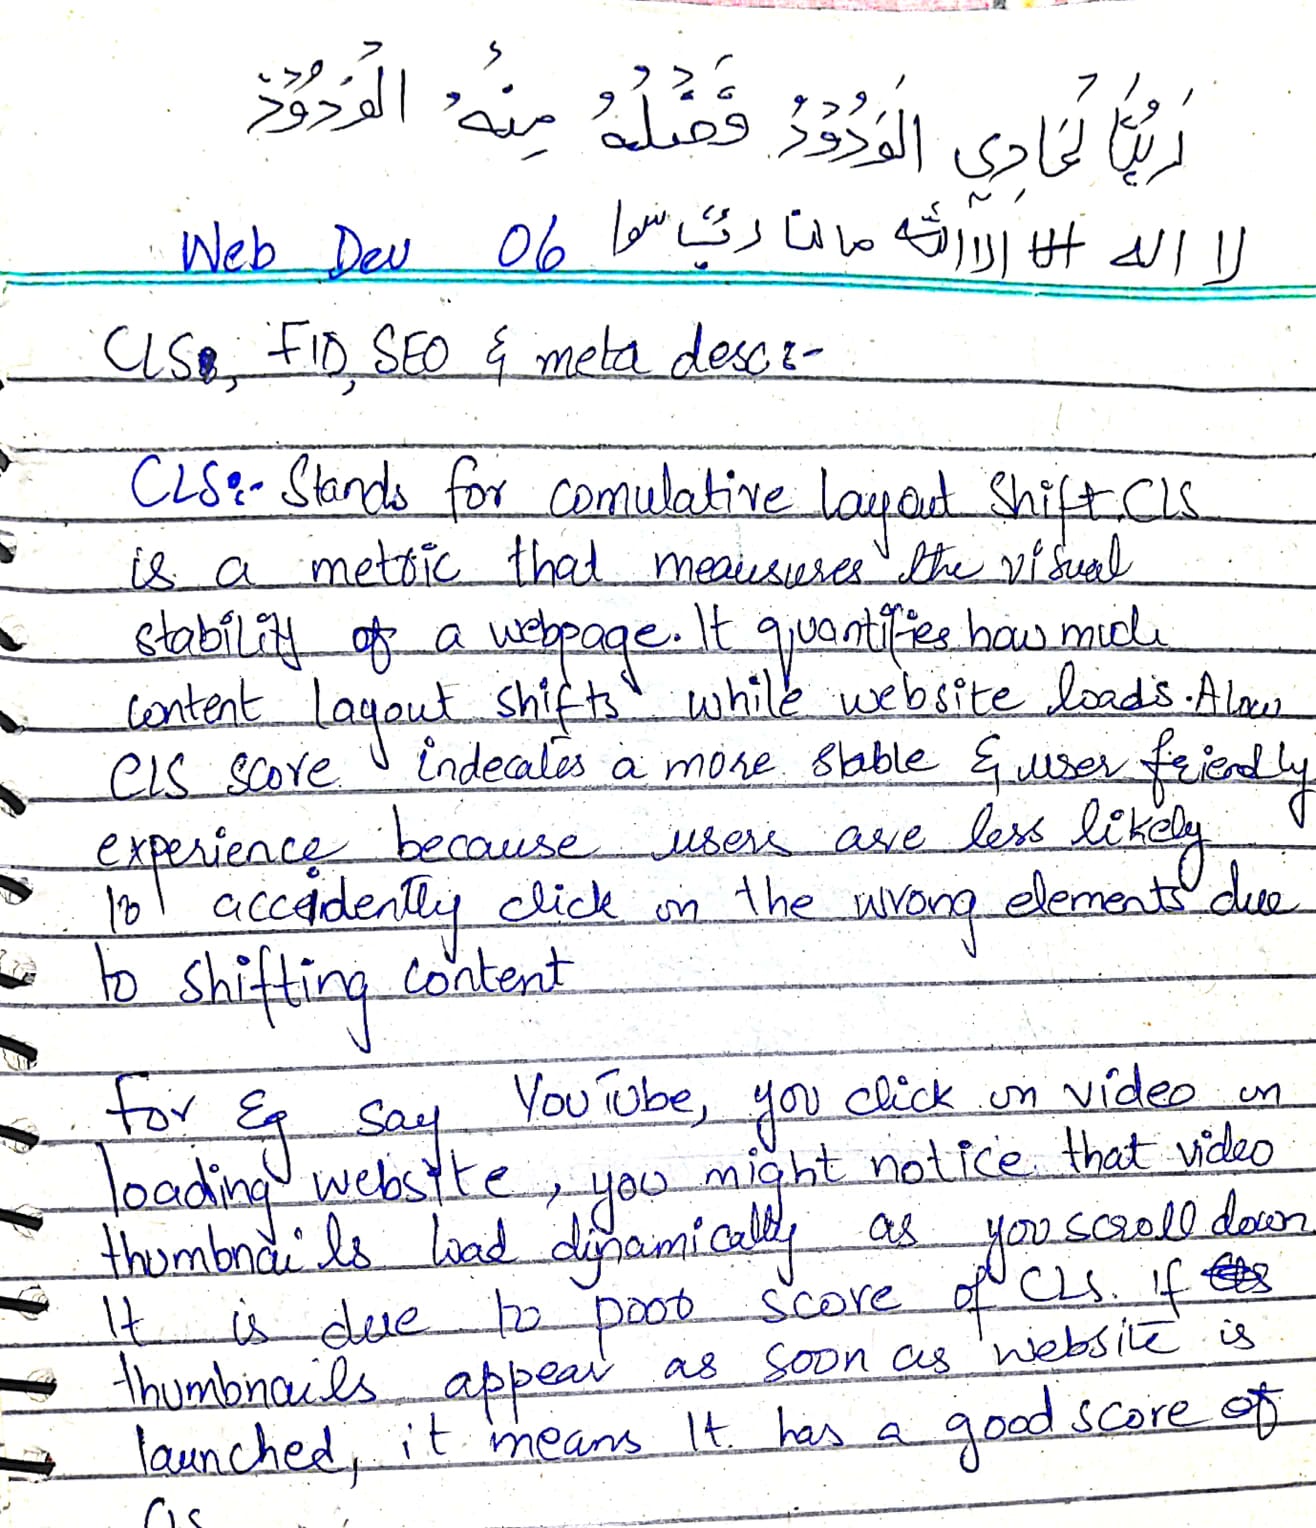 الوَدُوْدُ فَضْلُهُ مِنْهُ الْوَدُوْدُ
Web Dev 06 لا اله الا الله
CLS, FID, SEO & meta desc:-
CLS:- Stands for comulative layout Shift. CLS
is a metric that meausures the visual
stability of a webpage. It quantifies how much
content layout shifts while website loads. A low
CLS score indecates a more stable & user friendly
experience because users are less likely
to accidently click on the wrong elements due
to shifting content
for Eg say YouTube, you click on video on
loading website, you might notice that video
thumbnails load dynamically as you scroll down
It is due to poor score of CLS. if
thumbnails appear as soon as website is
launched, it means It has a good score of
CLS